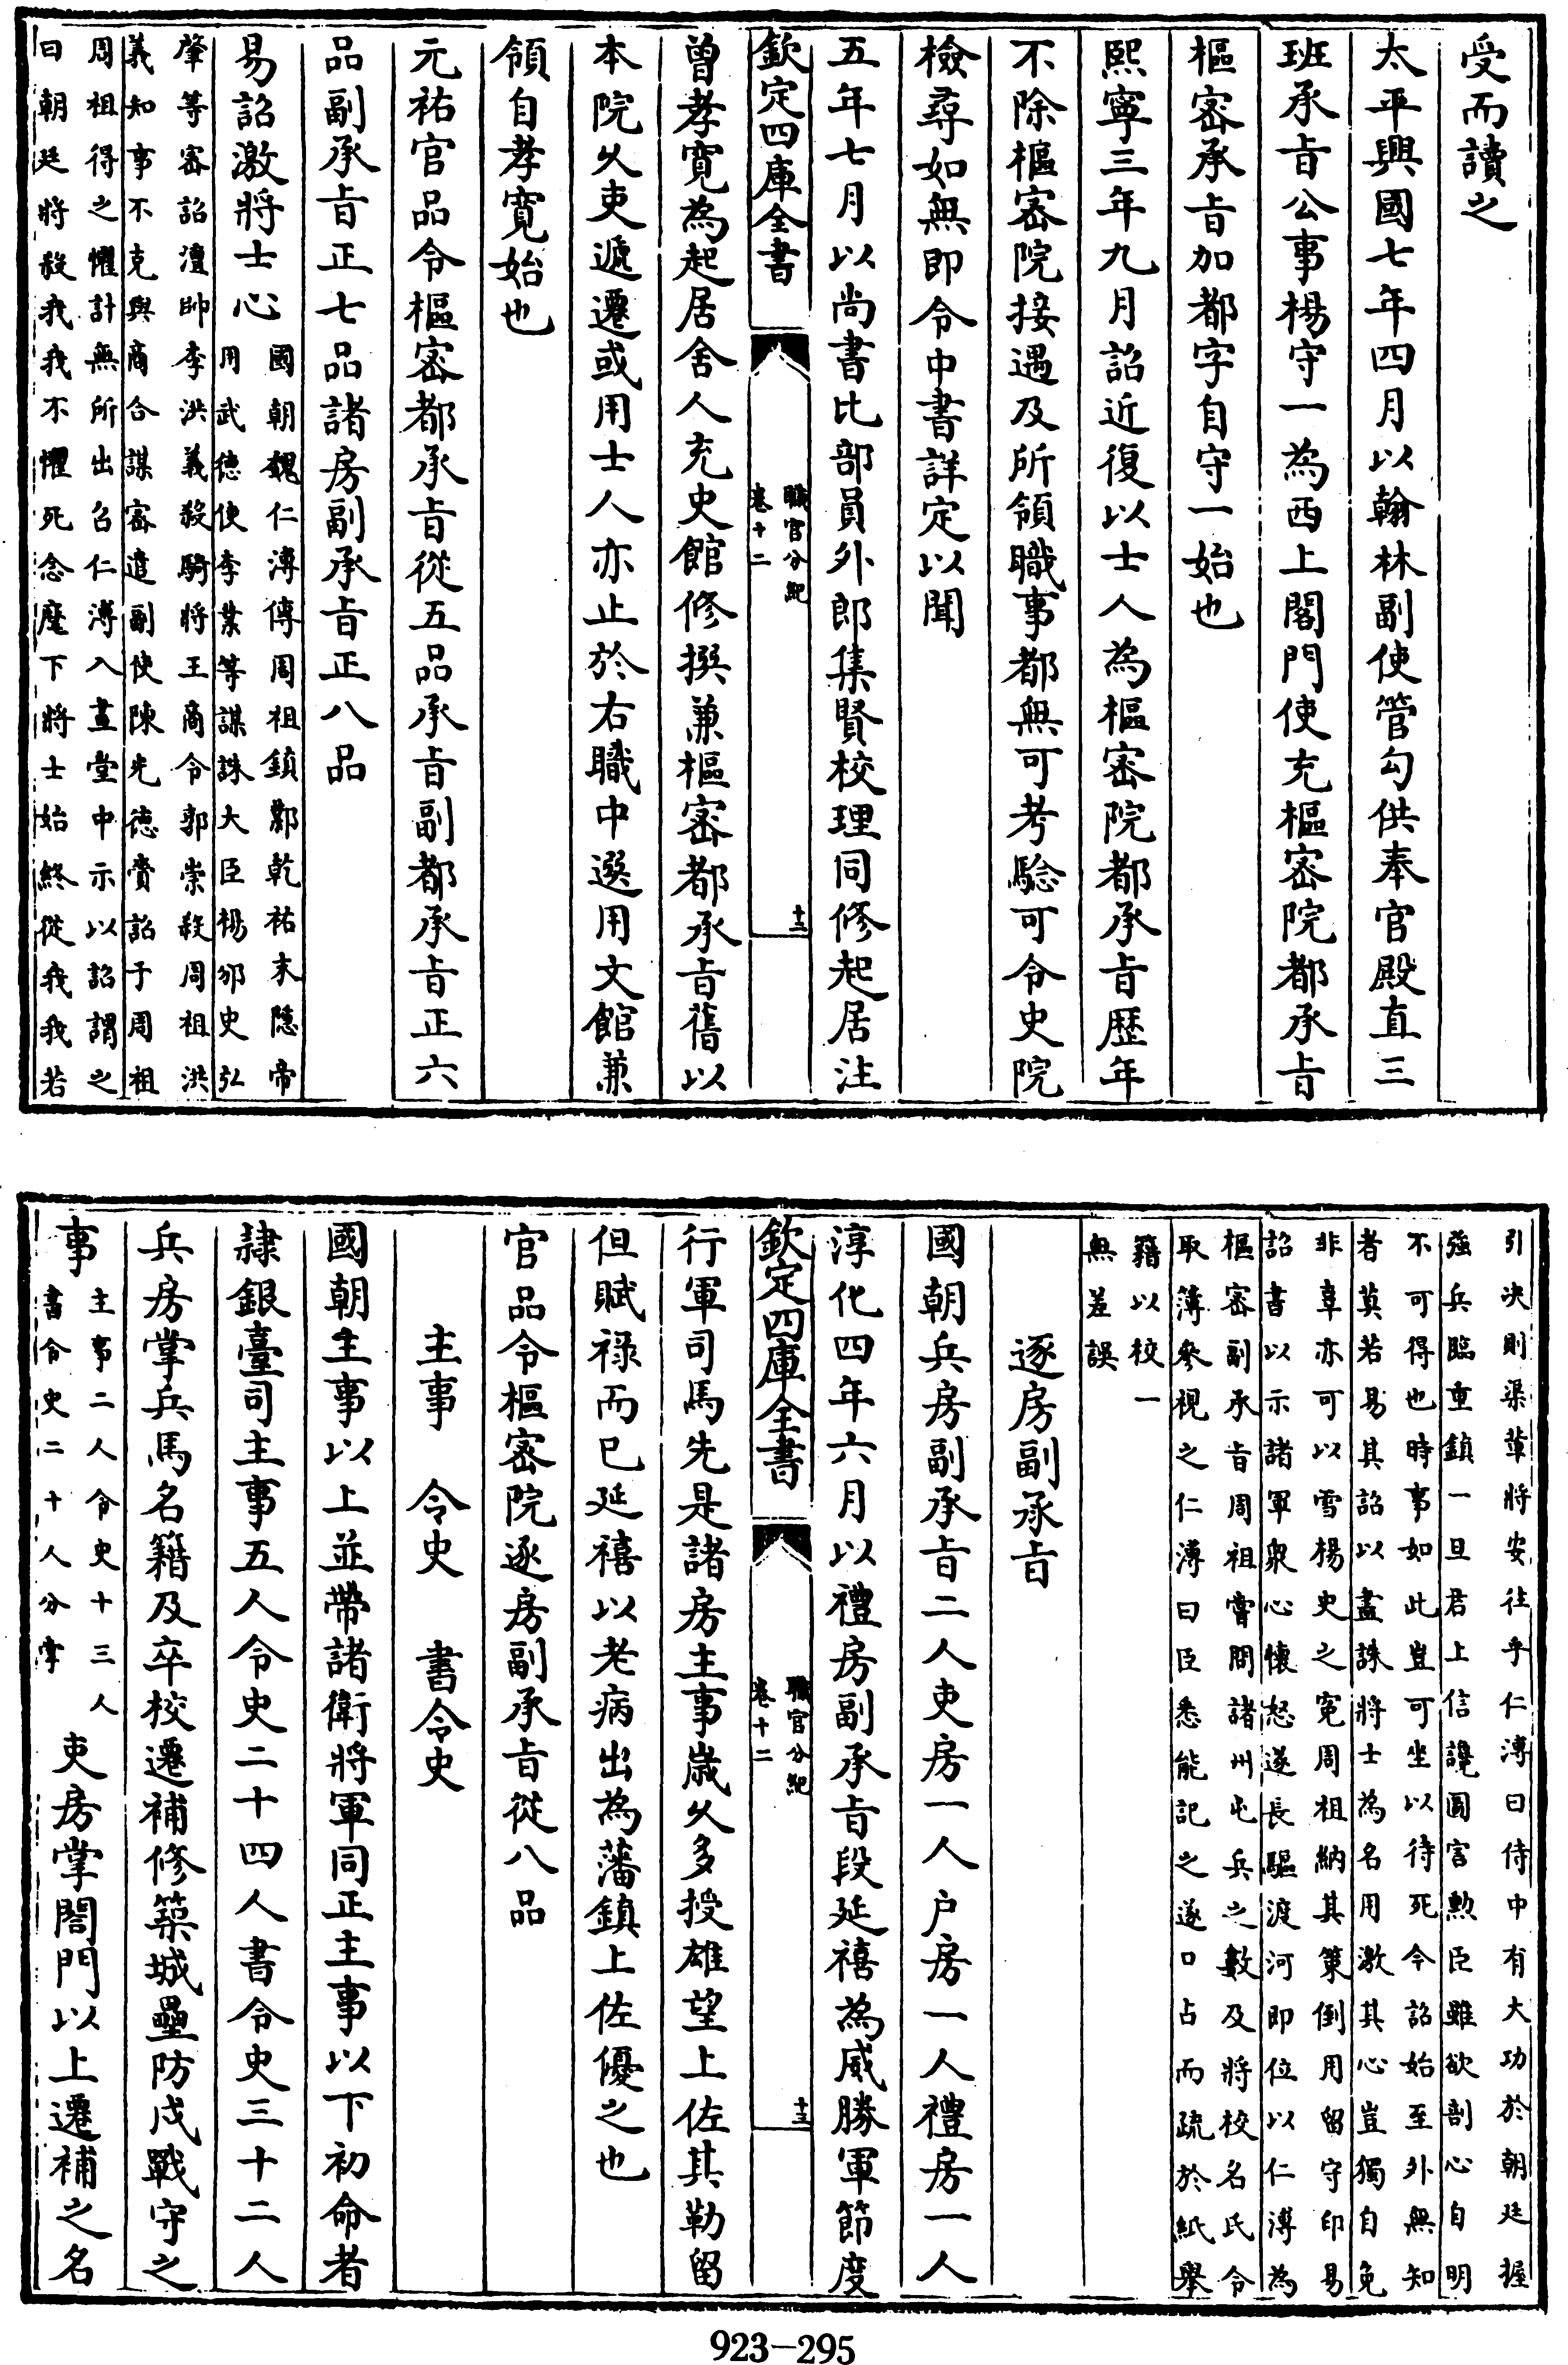 受而讀之
太平興國七年四月以翰林副使管勾供奉官殿直三
班承旨公事楊守一為西上閤門使充樞密院都承旨
樞密承旨加都字自守一始也
熙寧三年九月詔近復以士人為樞密院都承旨歷年
不除樞密院接遇及所領職事都無可考驗可令史院
檢尋如無即令中書詳定以聞
五年七月以尚書比部員外郎集賢校理同修起居注
欽定四庫全書
職官分紀
卷十二
十二
曾孝寬為起居舍人充史館修撰兼樞密都承旨舊以
本院久吏遞遷或用士人亦止於右職中選用文館兼
領自孝寬始也
元祐官品令樞密都承旨從五品承旨副都承旨正六
品副承旨正七品諸房副承旨正八品
易詔激將士心
國朝魏仁溥傳周祖鎮鄴乾祐末隱帝
用武德使李業等謀誅大臣楊邠史弘
肇等密詔澶帥李洪義殺騎將王商令郭崇殺周祖洪
義知事不克與商合謀密遣副使陳光德賫詔于周祖
周祖得之懼計無所出召仁溥入畫堂中示以詔謂之
曰朝廷將殺我我不懼死念麾下將士始終從我我若
引決則渠輩將安往乎仁溥曰侍中有大功於朝廷握
強兵臨重鎮一旦君上信讒圖害勲臣雖欲剖心自明
不可得也時事如此豈可坐以待死今詔始至外無知
者莫若易其詔以盡誅將士為名用激其心豈獨自免
非辜亦可以雪楊史之寃周祖納其策倒用留守印易
詔書以示諸軍衆心懷怒遂長驅渡河即位以仁溥為
樞密副承旨周祖嘗問諸州屯兵之數及將校名氏令
取簿叅視之仁溥曰臣悉能記之遂口占而疏於紙舉
籍以校一
無差誤
逐房副承旨
國朝兵房副承旨二人吏房一人户房一人禮房一人
淳化四年六月以禮房副承旨段延禧為威勝軍節度
欽定四庫全書
職官分紀
卷十二
十三
行軍司馬先是諸房主事歲久多授雄望上佐其勒留
但賦禄而已延禧以老病出為藩鎮上佐優之也
官品令樞密院逐房副承旨從八品
主事　令史　書令史
國朝主事以上並帶諸衛將軍同正主事以下初命者
隷銀臺司主事五人令史二十四人書令史三十二人
兵房掌兵馬名籍及卒校遷補修築城壘防戍戰守之
事
主事二人令史十三人
書令史二十人分掌
吏房掌閤門以上遷補之名
923-295